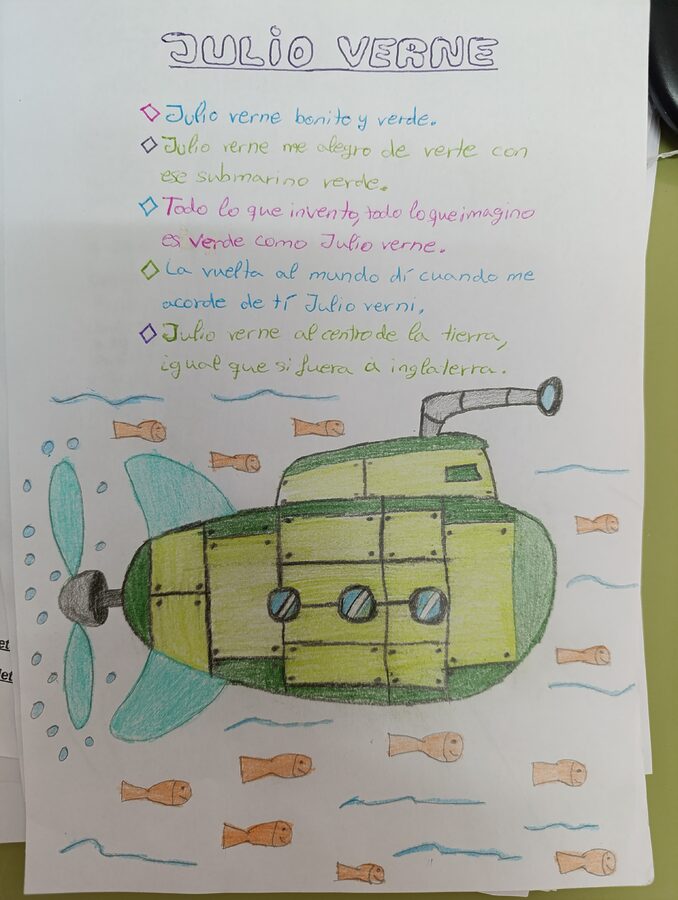 JULIO VERNE
Julio verne bonito y verde.
Julio verne me alegro de verte con
ese submarino verde.
Todo lo que invento, todo lo que imagino
es verde como Julio verne.
La vuelta al mundo dí cuando me
acorde de tí Julio verni,
Julio verne al centro de la tierra,
igual que si fuera a inglaterra.
et
let